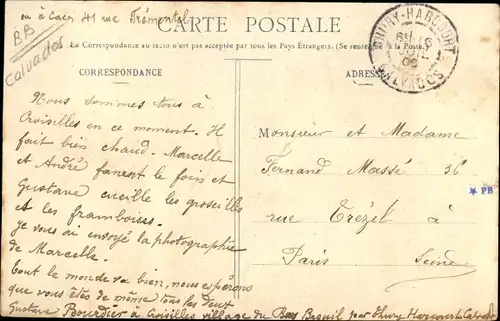 ou à Caen 41 rue Frémentel
BB
Calvados
CARTE POSTALE
La Correspondance au recto n'est pas acceptée par tous les Pays Étrangers. (Se renseigner à la Poste.)
THURY-HARCOURT
CALVADOS
CORRESPONDANCE
ADRESSE
Nous sommes tous à
Croisilles en ce moment. Il
fait bien chaud. Marcelle
et André fanent le foin et
Gustave cueille les groseilles
et les framboises.
je vous ai envoyé la photographie
de Marcelle.
tout le monde va bien, nous espérons
que vous êtes de même tous les deux
Gustave Bourdier à Croisilles village du Bas Breuil par Thury Harcourt Calvados
Monsieur et Madame
Fernand Massé 36
rue Trézel à
Paris Seine
* PB